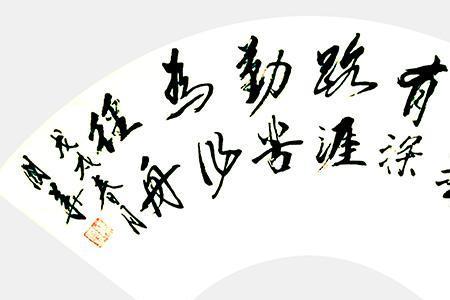 有路勤为径
涯苦作舟
戊戌春月
国華